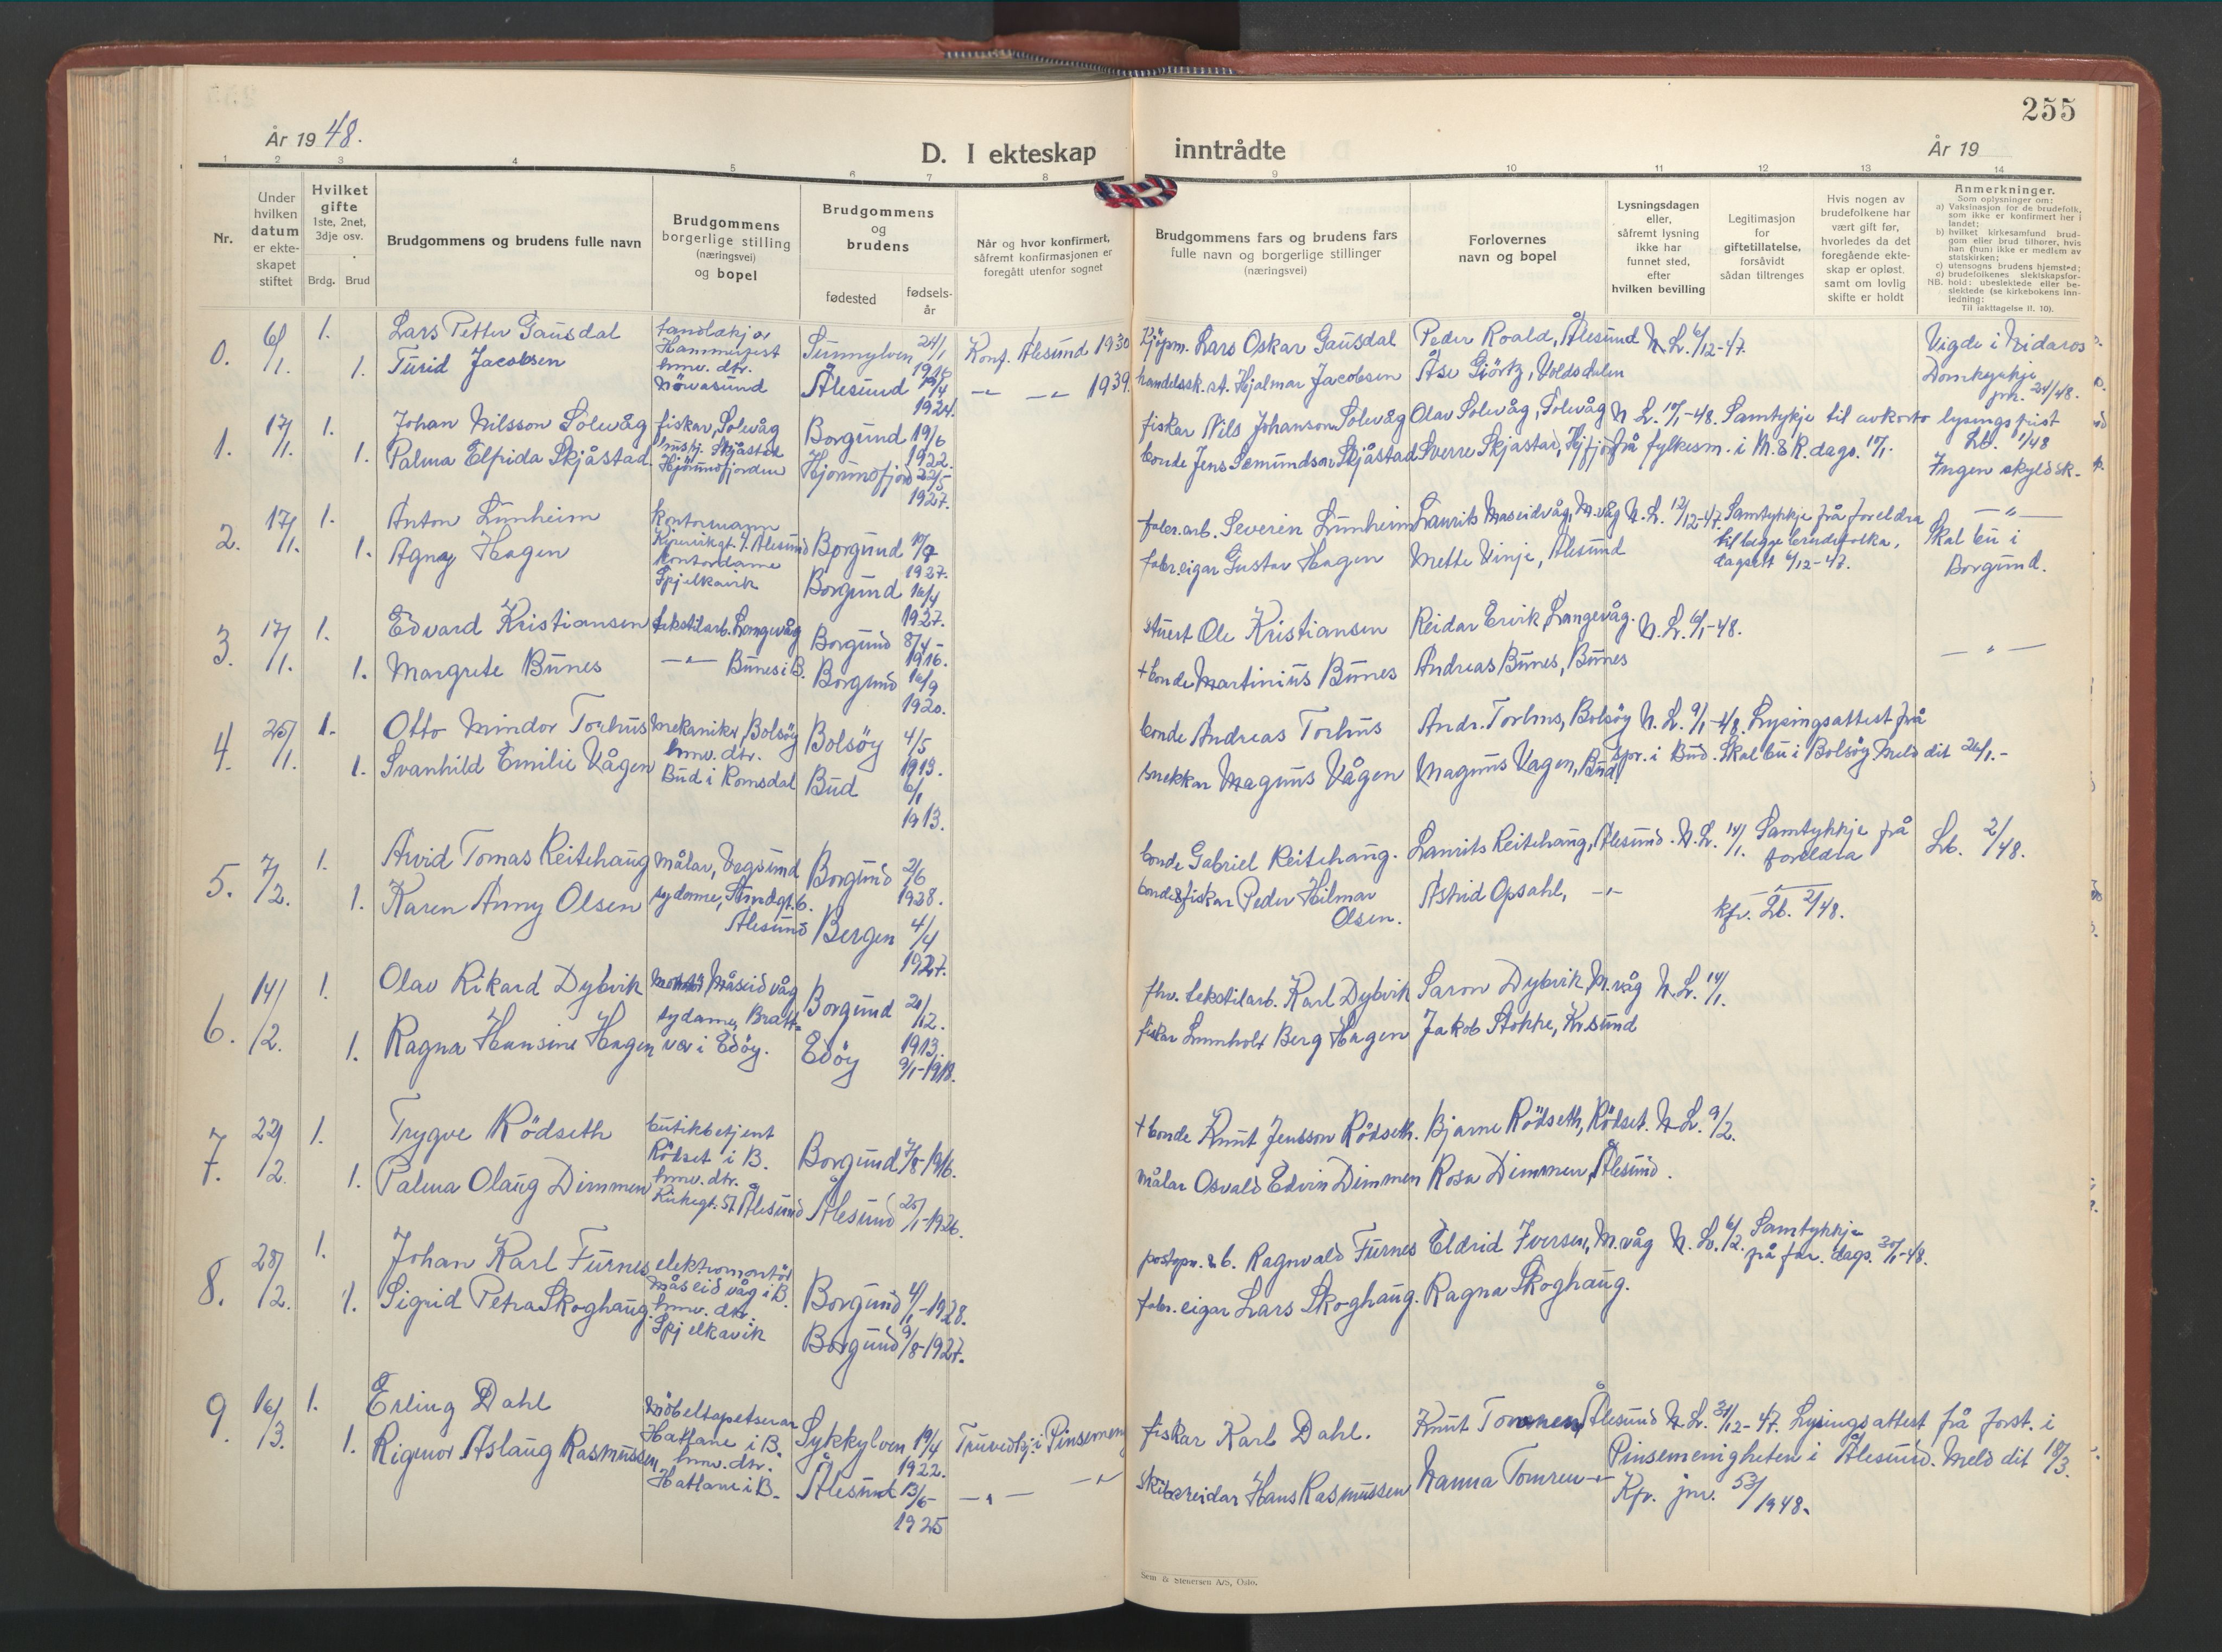 255
År 1948.
D. I ekteskap inntrådte
År 19
1 2 3 4 5 6 7 8 9 10 11 12 13 14
Nr.
Under
hvilken
datum
er ekte-
skapet
stiftet
Hvilket
gifte
1ste, 2net,
3dje osv.
Brdg. Brud
Brudgommens og brudens fulle navn
Brudgommens
borgerlige stilling
(næringsvei)
og bopel
Brudgommens
og
brudens
fødested
fødsels-
år
Når og hvor konfirmert,
såfremt konfirmasjonen er
foregått utenfor sognet
Brudgommens fars og brudens fars
fulle navn og borgerlige stillinger
(næringsvei)
Forlovernes
navn og bopel
Lysningsdagen
eller,
såfremt lysning
ikke har
funnet sted,
efter
hvilken bevilling
Legitimasjon
for
giftetillatelse,
forsåvidt
sådan tiltrenges
Hvis nogen av
brudefolkene har
vært gift før,
hvorledes da det
foregående ekte-
skap er opløst.
samt om lovlig
skifte er holdt
Anmerkninger.
Som oplysninger om:
a) Vaksinasjon for de brudefolk,
som ikke er konfirmert her i
landet;
b) hvilket kirkesamfund brud-
gom eller brud tilhører, hvis
han (hun) ikke er medlem av
statskirken;
c) utensogns brudens hjemsted;
d) brudefolkenes slektskapsfor-
hold: ubeslektede eller be-
slektede (se kirkebokens inn-
ledning:
NB. Til iakttagelse II. 10).
0. 6/1. 1. Lars Petter Gausdal
Hammerfest
Sunnylven 24/1 1916
Konf. Ålesund 1930
Lars Oskar Gausdal
Peder Roald, Ålesund
N. L. 6/12-47.
Vigde i Nidaros
Domkyrkje
24/48.
1. Turid Jacobsen
hmv. dtr.
Nörvasund
Ålesund 1924.
-"- -"- 1939.
handelssk. st. Hjalmar Jacobsen
Åse Giörtz, Voldsdalen
1. 17/1. 1. Johan Nilsson Solevåg
fiskar, Solevåg
Borgund 19/6 1922.
fiskar Nils Johanson Solevåg
Olav Solevåg, Solevåg
N. L. 10/1-48. Samtykje til avkorta lysingsfrist
frå fylkesm. i M. & R. dags. 17/1.
Lb. 1/48
Ingen skyldsk.
1. Palma Elfrida Skjåstad.
Skjåstad
Hjörundfjorden
Hjörundfjord 22/5 1927.
bonde Jens Semundson Skjåstad
Sverre Skjåstad, Hj.fjord
2. 17/1. 1. Anton Lunheim
kontormann
Ålesund
Borgund 1927.
fabr. arb. Severin Lunheim
Laurits Maseidvåg, M.våg
N. L. 12/12-47. Samtykkje frå foreldra
til begge brudefolka,
dagsett 6/12-47.
-"-
Skal bu i
Borgund.
1. Agnes Hagen
kontordame
Spjelkavik
Borgund 16/4 1927.
fabr. eigar Gustav Hagen
Mette Vinje, Ålesund
3. 17/1. 1. Edvard Kristiansen
tekstilarb. Langevåg
Borgund 8/4- 1916.
stuert Ole Kristiansen
Reidar Ervik, Langevåg.
N. L. 6/1-48.
-"-
1. Margrete Bunes
-"- Bunes i B.
Borgund 16/9 1920.
+ bonde Martinius Bunes
Andreas Bunes, Bunes
4. 25/1. 1. Otto Mindor Torhus
mekaniker, Bolsöy
Bolsöy 4/5 1913.
bonde Andreas Torhus
Andr. Torhus, Bolsöy
N. L. 9/1-48. Lysingsattest frå
spr. i Bud. Skal bu i Bolsöy. Meld dit 26/1.-
1. Svanhild Emilie Vågen
hmv. dtr.
Bud i Romsdal
Bud 6/1 1913.
snekkar Magnus Vågen
Magnus Vagen, Bud.
5. 7/2. 1. Arvid Tomas Reitehaug
målar, Vegsund
Borgund 2/6 1928.
bonde Gabriel Reitehaug.
Laurits Reitehaug, Ålesund.
N. L. 14/1.
Samtykkje frå
foreldra
Lb. 2/48.
1. Karen Anny Olsen
sydame, Strndgt. 6.
Ålesund
Bergen 4/4 1927.
bonde & fiskar Peder Hilmar
Olsen.
Astrid Opsahl, -"-
kfr. Lb. 2/48.
6. 14/2. 1. Olav Rikard Dybvik
Måseidvåg
Borgund 21/12. 1913.
fhv. tekstilarb. Karl Dybvik
Saron Dybvik, M.våg
N. L. 14/1.
1. Ragna Hansine Hagen
sydame, Bratt-
vær i Edöy.
Edöy 9/1-1918.
fiskar Lunholt Berg Hagen
Jakob Stokke, Kr.sund
7. 22/2. 1. Trygve Rödseth
butikbetjent
Rödset i B.
Borgund 7/8-1916.
+ bonde Knut Jensson Rödseth.
Bjarne Rödseth, Rödset.
N. L. 9/2.
1. Palma Olaug Dimmen
hmv. dtr.
Kirkegt. 51 Ålesund
Ålesund 25/1-1926.
målar Osvald Edvin Dimmen
Rosa Dimmen, Ålesund.
8. 28/2. 1. Johan Karl Furnes
elektromontör
Måseidvåg i B.
Borgund 4/1-1928.
postopn. & b. Ragnvald Furnes
Eldrid Iversen, M.våg
N. L. 6/2.
Samtykkje
frå far. dags. 30/1-48.
1. Sigrid Petra Skoghaug.
hmv. dtr.
Spjelkavik
Borgund 9/8-1927.
fabr. eigar Lars Skoghaug.
Ragna Skoghaug.
9. 16/3. 1. Erling Dahl
Möbeltapetserar
Hatlane i B.
Sykkylven 19/4 1922.
fiskar Karl Dahl.
Knut Tomren, Ålesund
N. L. 31/12-47. Lysingsattest frå forst. i
Pinsemenigheten i Ålesund. Meld dit 18/3.
Kfr. jnr. 53/1948.
1. Rigmor Aslaug Rasmussen
hmv. dtr.
Hatlane i B.
Ålesund 13/5- 1925
-"- -"-
skibsreidar Hans Rasmussen
Nanna Tomren -"-
Sem & Stenersen A/S, Oslo.